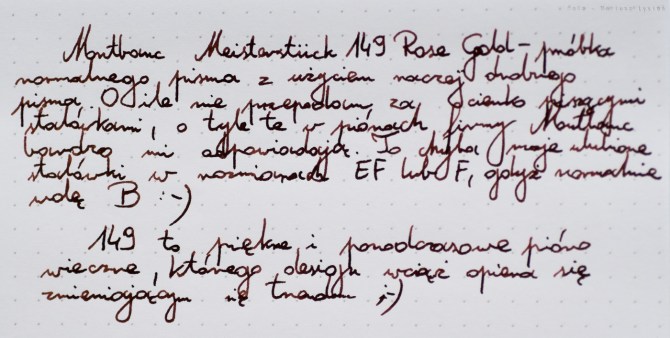 Montblanc Meisterstück 149 Rose Gold - próbka
normalnego pisma z użyciem raczej drobnego
pisma. O ile nie przepadam za cienko piszącymi
stalówkami, o tyle te w piórach firmy Montblanc
bardzo mi odpowiadają. To chyba moje ulubione
stalówki w rozmiarach EF lub F, gdyż normalnie
wolę B :-)
149 to piękne i ponadczasowe pióro
wieczne, którego design wciąż opiera się
zmieniającym się trendom ;-)